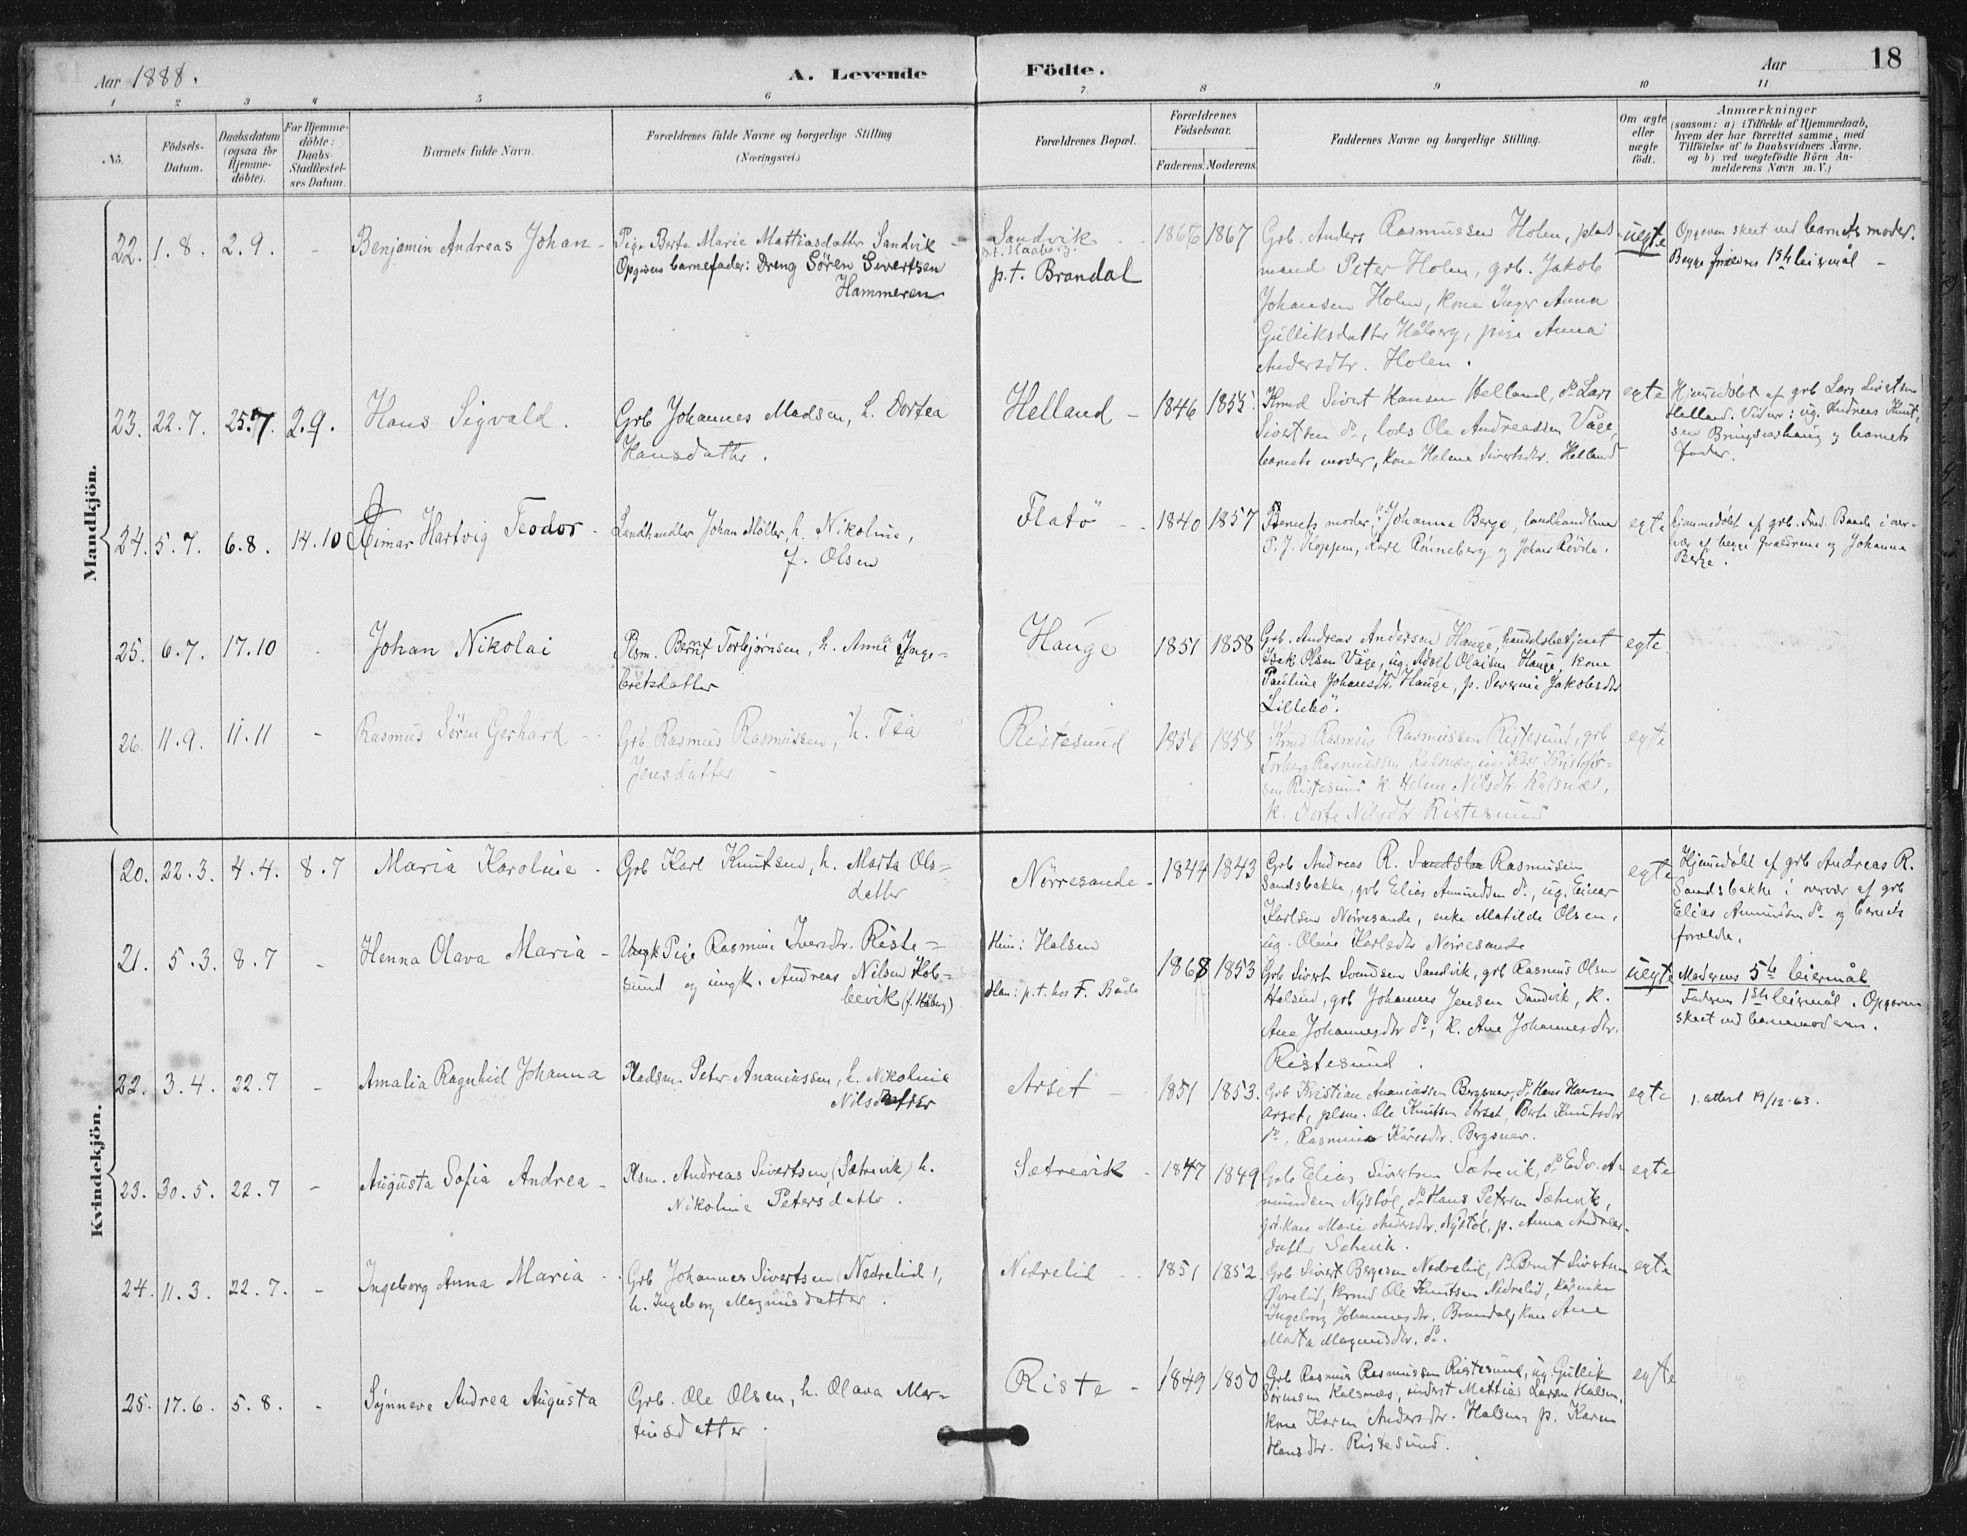 Aar 1888.
A. Levende Födte.
Aar
18
1 2 3 4 5 6 7. 8 9 10 11
No.
Födsels-Datum.
Daabsdatum (ogsaa for Hjemme-döbte).
For Hjemme-döbte: Daabs-Stadfæstel-ses Datum.
Barnets fulde Navn.
Forældrenes fulde Navne og borgerlige Stilling (Næringsvei.)
Forældrenes Bopæl.
Forældrenes Födselsaar.
Faderens. Moderens.
Faddernes Navne og borgerlige Stilling.
Om ægte eller uægte födt.
Anmærkninger
(saasom: a) i Tilfælde af Hjemmedaab, hvem der har forrettet samme, med Tilföielse af to Daabsvidners Navne. og b) ved uægtefödte Börn An-melderens Navn m. V.)
Mandkjön.
22. 1.8. 2.9. - Benjamin Andreas Johan - Pige Berte Marie Mattiasdatter Sandvik -
Opgiven barnefader: Dreng Sören Sivertsen
Hammeren
Sandvik
p.t. Haaberg.
p.t. Brandal
1866 1867
Grb. Anders Rasmussen Holen, plads-
mand Peter Holm, grb. Jakob
Johansen Holm, kone Inger Anna
Gulliksdatter Håberg, pige Anna
Andersdtr. Holen.
uegte
Opgaven skeet ved barnets moder.
Begge forældres 1ste leiermål -
23. 22.7. 25.7. 2.9. Hans Sigvald. Grb Johannes Madsen, h. Dortea
Hansdatter.
Helland - 1846 1855.
Kmd Sivert Hansen Helland, do Lars
Sivertsen do, lods Ole Andreassen Våge,
barnets moder, kone Helene Sivertsdtr. Helland
egte
Hjemmedøbt af grb Lars Sivertsen
Helland. Vidner: ug. Andreas Knut-
sen Bringsvorhaug og barnets
fader.
24. 5.7. 6.8. 14.10 Hartvig Teodor - Landhandler Johan Møller, h. Nikoline,
f. Olsen
Flatö - 1840 1857
Barnets moder, Johanna Berge, landhandlerne
P. J. Hoppen, Karl Rönneberg og Johan Rövde.
egte
hjemmedøbt af grb. Fred. Baade i over-
vær af begge forældrene og Johanna
Berge.
25. 6.7. 17.10 Johan Nikolai Plsm. Bernt Torbjørnsen, h. Anne Inge-
bretsdatter
Hauge 1851 1858
Grb. Andreas Andersen Hauge, handelsbetjent
Isak Olsen Våge, ug. Adolf Olaisen Hauge, kone
Pauline Johansdtr. Hauge, p. Severine Jakobsdtr
Lillebö.
egte.
26. 11.9. 11.11 - Rasmus Sören Gerhard - Grb Rasmus Rasmussen, h. Tea
Jensdatter -
Ristesund 1856 1858
Kmd Rasmus Rasmussen Ristesund, grb
Torberg Rasmussen Kalsnæs, ug. Kristoffer-
sen Ristesund k. Helene Nilsdtr. Kalsnæs,
k. Dorte Nilsdtr Ristesund
egte
Kvindekjön.
20. 22.3. 4.4. 8.7 Maria Karoline. Grb Karl Knutsen, h. Marta Ols-
datter
Nörresande - 1844 1843
Grb Andreas R. Rasmusen
Sandsbakke, grb Elias Amundsen do, ug. Einar
Karlsen Nörresande, enke Matilde Olsen,
ug. Oline Karlsdtr Nörresande
egte
Hjemmedøbt af grb Andreas R.
Sandsbakke i overvær af grb
Elias Amundsen do og barnets
forældre.
21. 5.3. 8.7 - Henna Olava Maria - Ungk Pige Rasmine Iversdtr. Riste-
sund og ungk. Andreas Nilsen Kob-
bevik (f. Håberg)
Hun: Halsen
Han: p.t. hos F. Både
1868 1853
Grb Sivert Svendsen Sandvik, grb Rasmus Olsen
Halsund, grb Johannes Jensen Sandvik, k.
Ane Johannesdtr do, k. Ane Johannesdtr.
Ristesund.
uegte
Moderens 5te leiermål
Faderens 1ste leiermål. Opgaven
skeet ved barnemoderen.
22. 3.4. 22.7 - Amalia Ragnhid Johanna Pladsm. Peter Ananiassen, h. Nikoline
Nilsdatter
Arset - 1851 1853.
Grb Kristian Ananiassen Bergsnev, do Hans Hansen
Arset, plsm. Ole Knutsen Arset, Berte Knutsdtr
do, Rasmine Kåresdtr. Bergsnev.
egte
1. attest 19/12-63.
23. 30.5. 22.7 - Augusta Sofia Andrea - Plsm. Andreas Sivertsen, (Sætrevik) h.
Nikoline Petersdatter.
Sætrevik - 1847 1849
Grb Elias Sivertsen Sætrevik, do Edv. A-
mundsen Nystöl, do Hans Petersen Sætrevik,
grb.kone Marie Andersdtr. Nystöl, p. Anna Andreas-
datter Sætrevik.
egte
24. 11.3. 22.7. - Ingeborg Anna Maria - Grb Johannes Sivertsen (Nedrelid),
h. Ingeborg Magnusdatter.
Nedrelid - 1851 1852.
Grb Sivert Bergesen Nedrelid, do Bernt Sivertsen
Øvrelid, kmd Ole Knutsen Nedrelid,
Ingeborg Johannesdtr. Brandal, kone Ane
Marta Magnusdtr. do.
egte
25. 17.6. 5.8. - Synneve Andrea Augusta Grb. Ole Olsen, h. Olava Mar-
tinsdatter.
Riste - 1849 1850
Grb Rasmus Rasmussen Ristesund, ug. Gullik
Sörensen Kalsnæs, inderst Mattias Larsen Halsen,
kone Karen Andersdtr. Halsen, p. Karen
Hansdtr. Ristesund.
egte